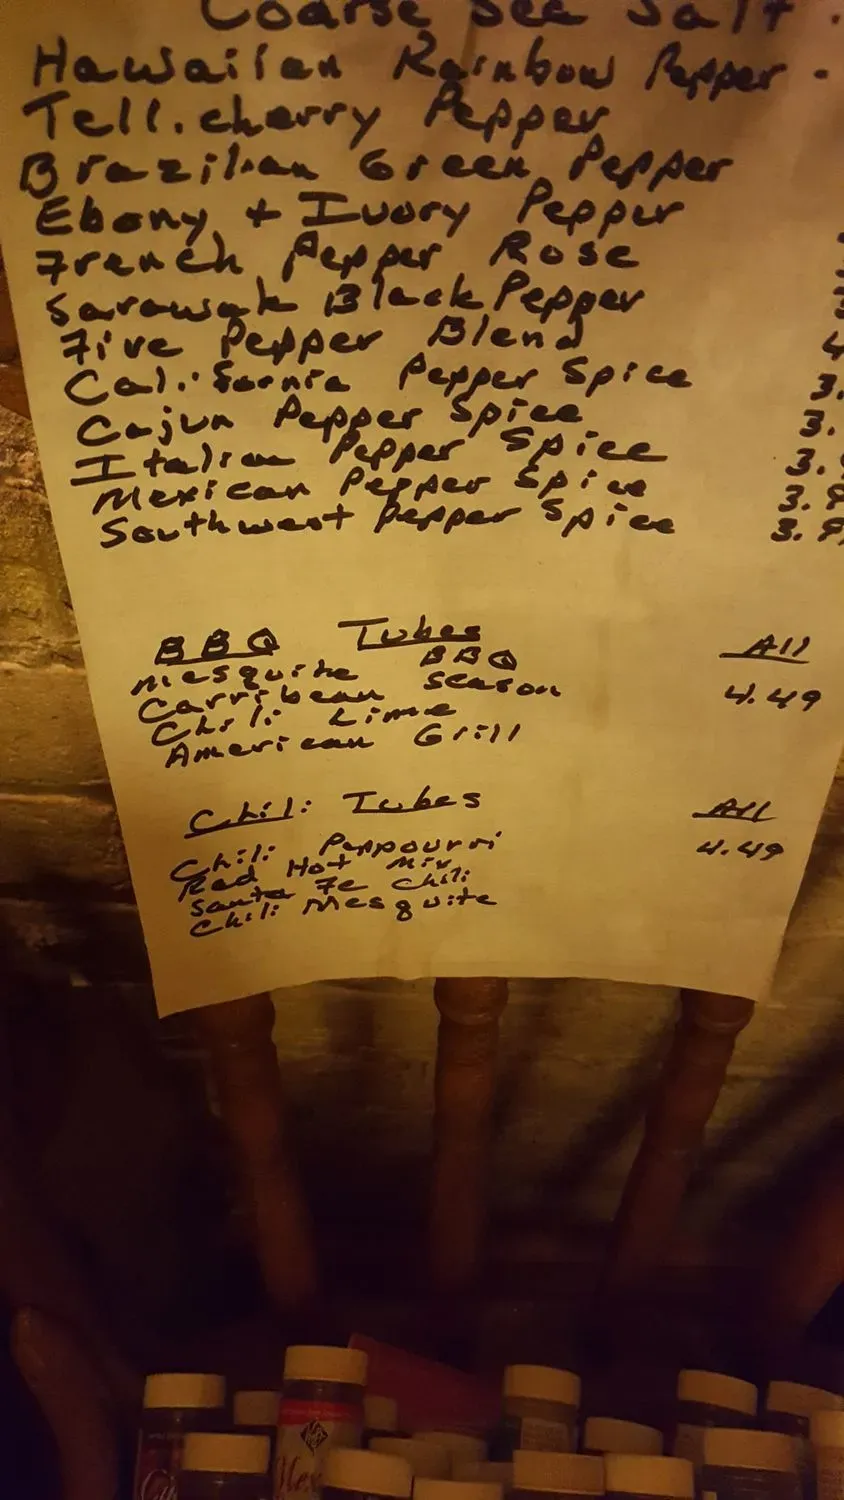 Coarse Sea Salt -
Hawaiian Rainbow Pepper -
Tellicherry Pepper
Brazilian Green Pepper
Ebony + Ivory Pepper
French Pepper Rose
Sarawak Black Pepper
Five Pepper Blend 4
California Pepper Spice 3.
Cajun Pepper Spice 3.
Italian Pepper Spice 3.
Mexican Pepper Spice 3.9
Southwest Pepper Spice 3.9
BBQ Tubes All
Mesquite BBQ 4.49
Carribean Season
Chili Lime
American Grill
Chili Tubes All
Chili Peppourri 4.49
Red Hot Mix
Santa Fe Chili
Chili Mesquite